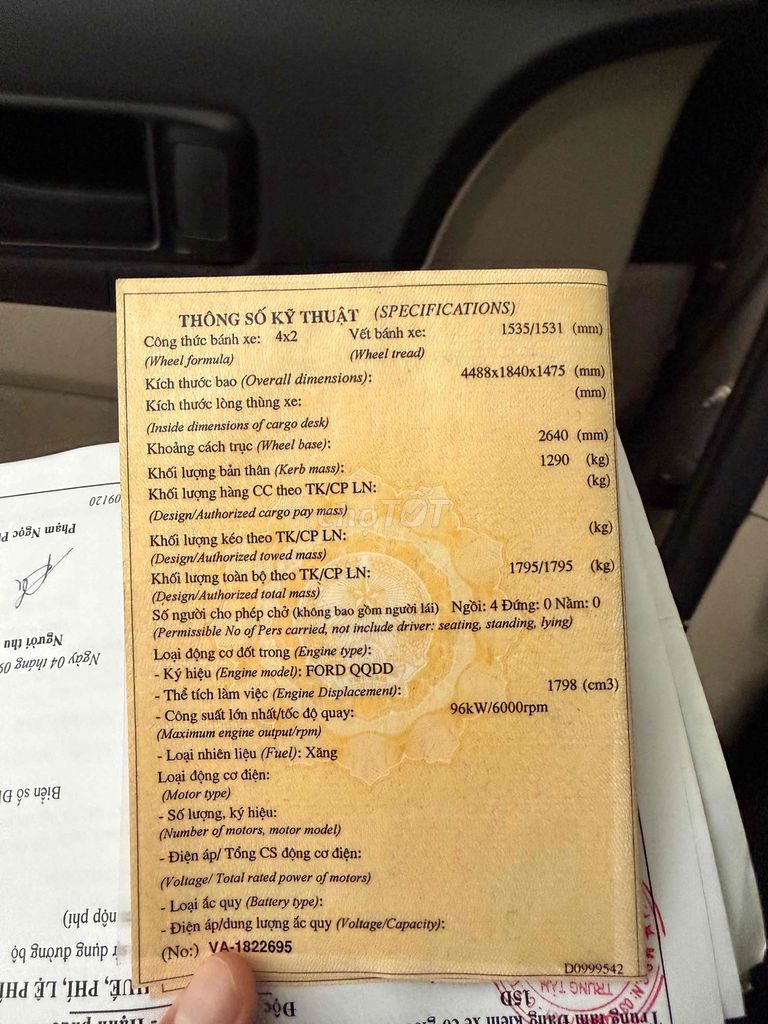 THÔNG SỐ KỸ THUẬT (SPECIFICATIONS)
Công thức bánh xe: 4x2 Vết bánh xe: 1535/1531 (mm)
(Wheel formula) (Wheel tread)
Kích thước bao (Overall dimensions): 4488x1840x1475 (mm)
Kích thước lòng thùng xe: (mm)
(Inside dimensions of cargo desk)
Khoảng cách trục (Wheel base): 2640 (mm)
Khối lượng bản thân (Kerb mass): 1290 (kg)
Khối lượng hàng CC theo TK/CP LN: (kg)
(Design/Authorized cargo pay mass)
chợTỐT
Khối lượng kéo theo TK/CP LN: (kg)
(Design/Authorized towed mass)
Khối lượng toàn bộ theo TK/CP LN: 1795/1795 (kg)
(Design/Authorized total mass)
Số người cho phép chở (không bao gồm người lái) Ngồi: 4 Đứng: 0 Nằm: 0
(Permissible No of Pers carried, not include driver: seating, standing, lying)
Loại động cơ đốt trong (Engine type):
- Ký hiệu (Engine model): FORD QQDD
- Thể tích làm việc (Engine Displacement): 1798 (cm3)
- Công suất lớn nhất/tốc độ quay: 96kW/6000rpm
(Maximum engine output/rpm)
- Loại nhiên liệu (Fuel): Xăng
Loại động cơ điện:
(Motor type)
- Số lượng, ký hiệu:
(Number of motors, motor model)
- Điện áp/ Tổng CS động cơ điện:
(Voltage/ Total rated power of motors)
- Loại ắc quy (Battery type):
- Điện áp/dung lượng ắc quy (Voltage/Capacity):
(No:) VA-1822695
D0999542
091120
Phạm Ngọc
Người thu
Ngày 04 tháng 09
Biển số
nộp phí)
sử dụng đường bộ
HUẾ, PHÍ, LỆ PHÍ
Độc
Hạnh
15D
Trung tâm Đăng kiểm xe cơ
TRUNG TÂM